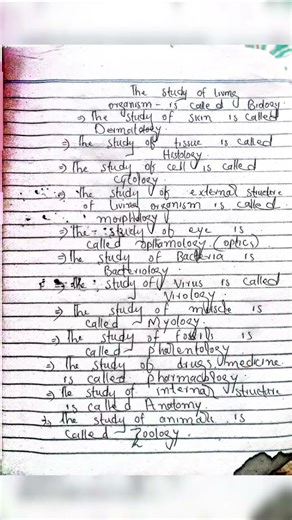 The study of living
organism - is called Biology
⇒ The study of skin is called
Dermatology.
⇒ The study of tissue is called
Histology
⇒ The study of cell is called
Cytology.
⇒ The study of external structure
of living organism is called
morphology
⇒ The study of eye is
called opthamology (optics)
⇒ The study of Bacteria is
Bacteriology.
⇒ The study of Virus is called
Virology.
⇒ The study of muscle is
called - Myology.
⇒ The study of fossils is
called - phalentology
⇒ The study of drugs, medicine
is called pharmacology.
⇒ The study of internal structure
is called Anatomy.
⇒ The study of animals is
called - Zoology.